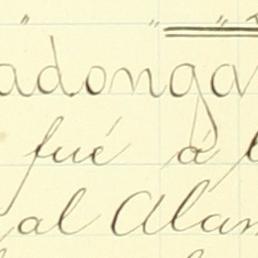 " " "
adonga
fué á
al Alam